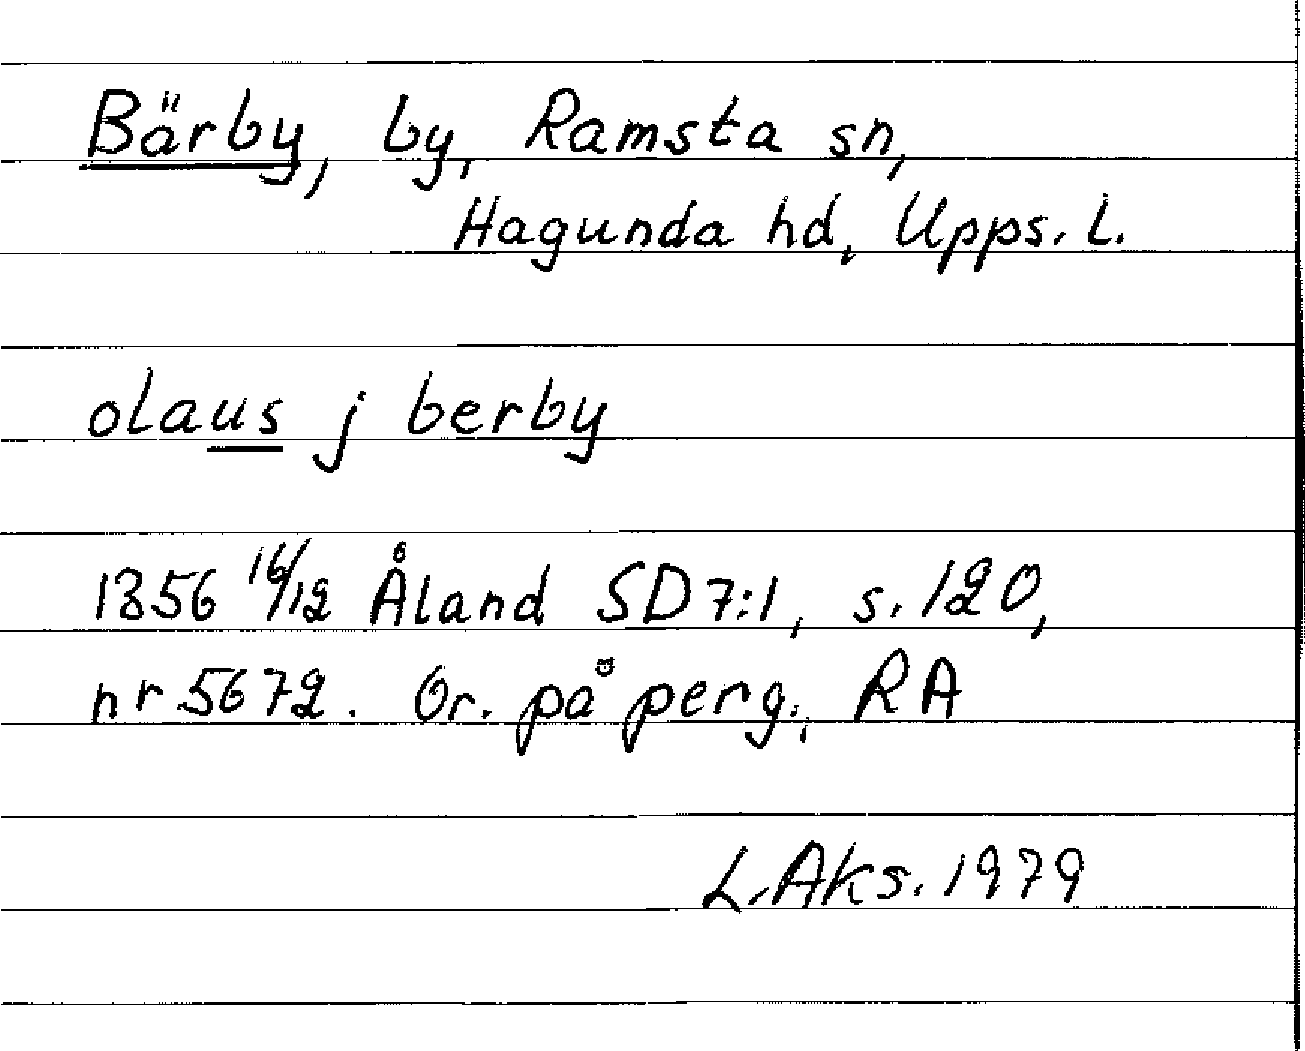 Bärby, by, Ramsta sn,
Hagunda hd, Upps. l.
olaus j berby
1356 16/12 Åland SD 7:1, s. 120,
nr 5672. Or. på perg., RA
L. Aks. 1979